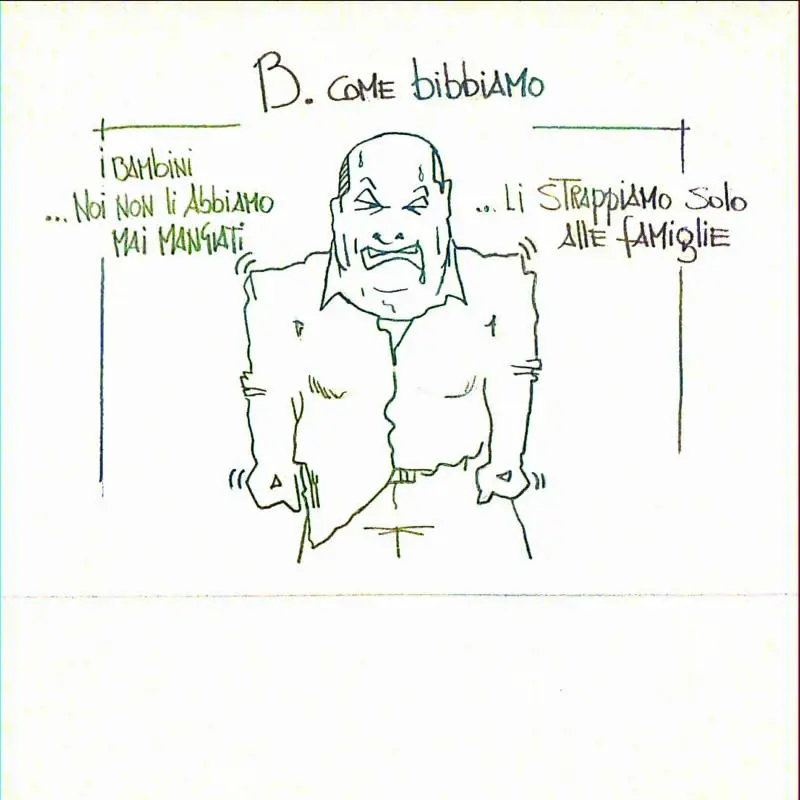 B. COME bibbiAMO
i BAMbiNi
...Noi NON li AbbiAMO
MAi MANGiATi
...Li STRAppiAMO Solo
AllE fAMiglIE